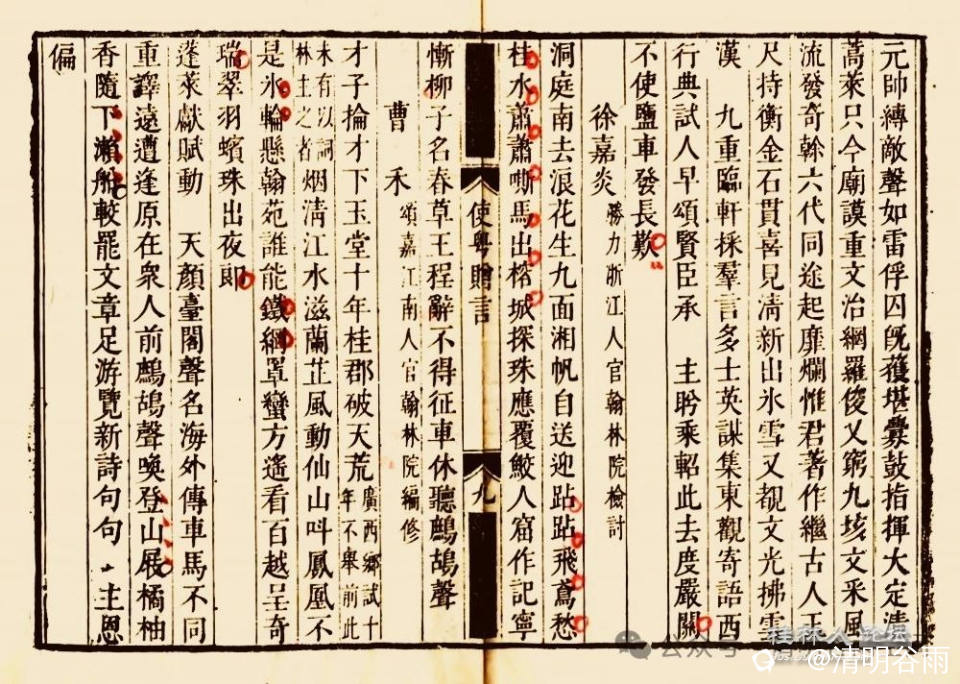 元帥縛敵聲如雷俘囚旣獲堪釁鼓指揮大定清
蒿萊只今廟謨重文治網羅俊乂窮九垓文采風
流發奇榦六代同途起靡爛惟君著作繼古人玉
尺持衡金石貫喜見淸新出氷雪又覩文光拂雲
漢 九重臨軒採羣言多士英謀集東觀寄語西
行典試人早頌賢臣承 主聆乘軺此去度嚴關
不使鹽車發長歎
徐嘉炎 勝力浙江人官翰林院檢討
洞庭南去浪花生九面湘帆自送迎跕跕飛鳶愁
桂水蕭蕭嘶馬出榕城探珠應覆鮫人窟作記寧
使粵贈言
九
慚柳子名春草王程辭不得征車休聽鷓鴣聲
曹禾 頌嘉江南人官翰林院編修
才子掄才下玉堂十年桂郡破天荒 廣西鄉試十年不舉前此
未有以詞林主之者 烟淸江水滋蘭芷風動仙山叫鳳凰不
是氷輪懸翰苑誰能鐵網罩蠻方遙看百越呈奇
瑞翠羽蠙珠出夜郎
蓬萊獻賦動 天顏臺閣聲名海外傳車馬不同
重譯遠遭逢原在衆人前鷓鴣聲喚登山展橘柚
香隨下瀨船較罷文章足游覽新詩句句 主恩
偏
公众号
桂林人论坛
@清明谷雨